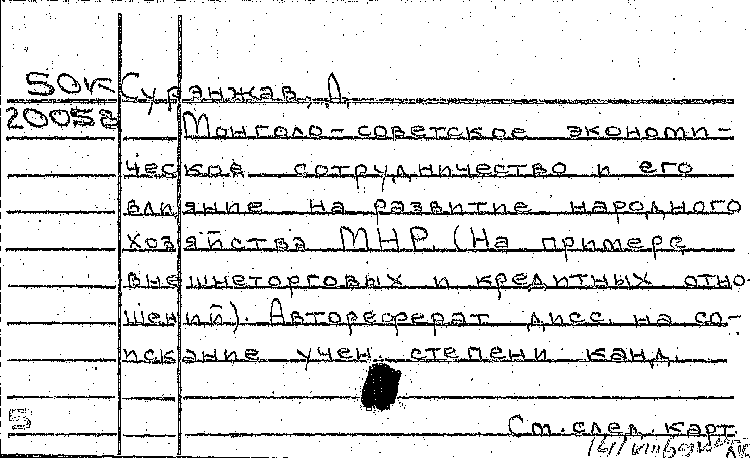 50К Суранжав, Д.
20058 Монголо-советское экономи-
ческое сотрудничество и его
влияние на развитие народного
хозяйства МНР. (На примере
внешнеторговых и кредитных отно-
шений). Автореферат дисс. на со-
искание учен. степени канд.
5 См. след. карт.